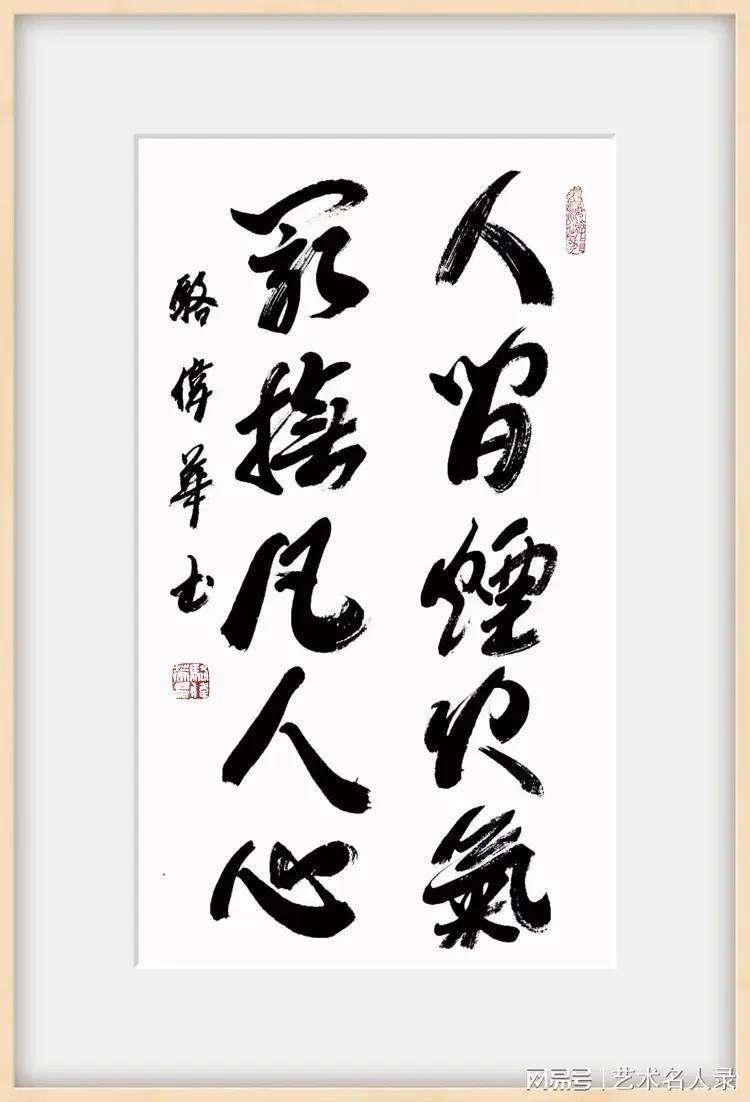 人間煙火氣
最撫凡人心
駱偉華书
网易号 | 艺术名人录